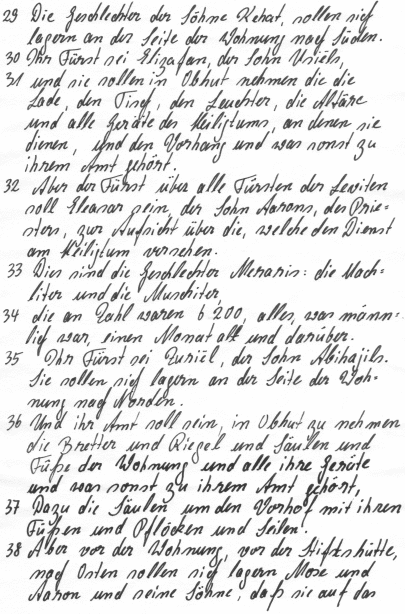 29 Die Geschlechter der Söhne Kehat, sollen sich
lagern an der Seite der Wohnung nach Süden.
30 Ihr Fürst sei Elizafan, der Sohn Usiëls,
31 und sie sollen in Obhut nehmen die die
Lade, den Tisch, den Leuchter, die Altäre
und alle Geräte des Heiligtums, an denen sie
dienen, und den Vorhang und was sonst zu
ihrem Amt gehört.
32 Aber der Fürst über alle Fürsten der Leviten
soll Eleasar sein, der Sohn Aarons, des Prie-
sters, zur Aufsicht über die, welche den Dienst
am Heiligtum versehen.
33 Dies sind die Geschlechter Meraris: die Mach-
liter und die Muschiter,
34 die an Zahl waren 6200, alles, was männ-
lich war, einen Monat alt und darüber.
35 Ihr Fürst sei Zuriël, der Sohn Abihajils.
Sie sollen sich lagern an der Seite der Woh-
nung nach Norden.
36 Und ihr Amt soll sein, in Obhut zu nehmen
die Bretter und Riegel und Säulen und
Füße der Wohnung und alle ihre Geräte
und was sonst zu ihrem Amt gehört,
37 Dazu die Säulen um den Vorhof mit ihren
Füßen und Pflöcken und Seilen.
38 Aber vor der Wohnung, vor der Stiftshütte,
nach Osten sollen sich lagern Mose und
Aaron und seine Söhne, daß sie auf das